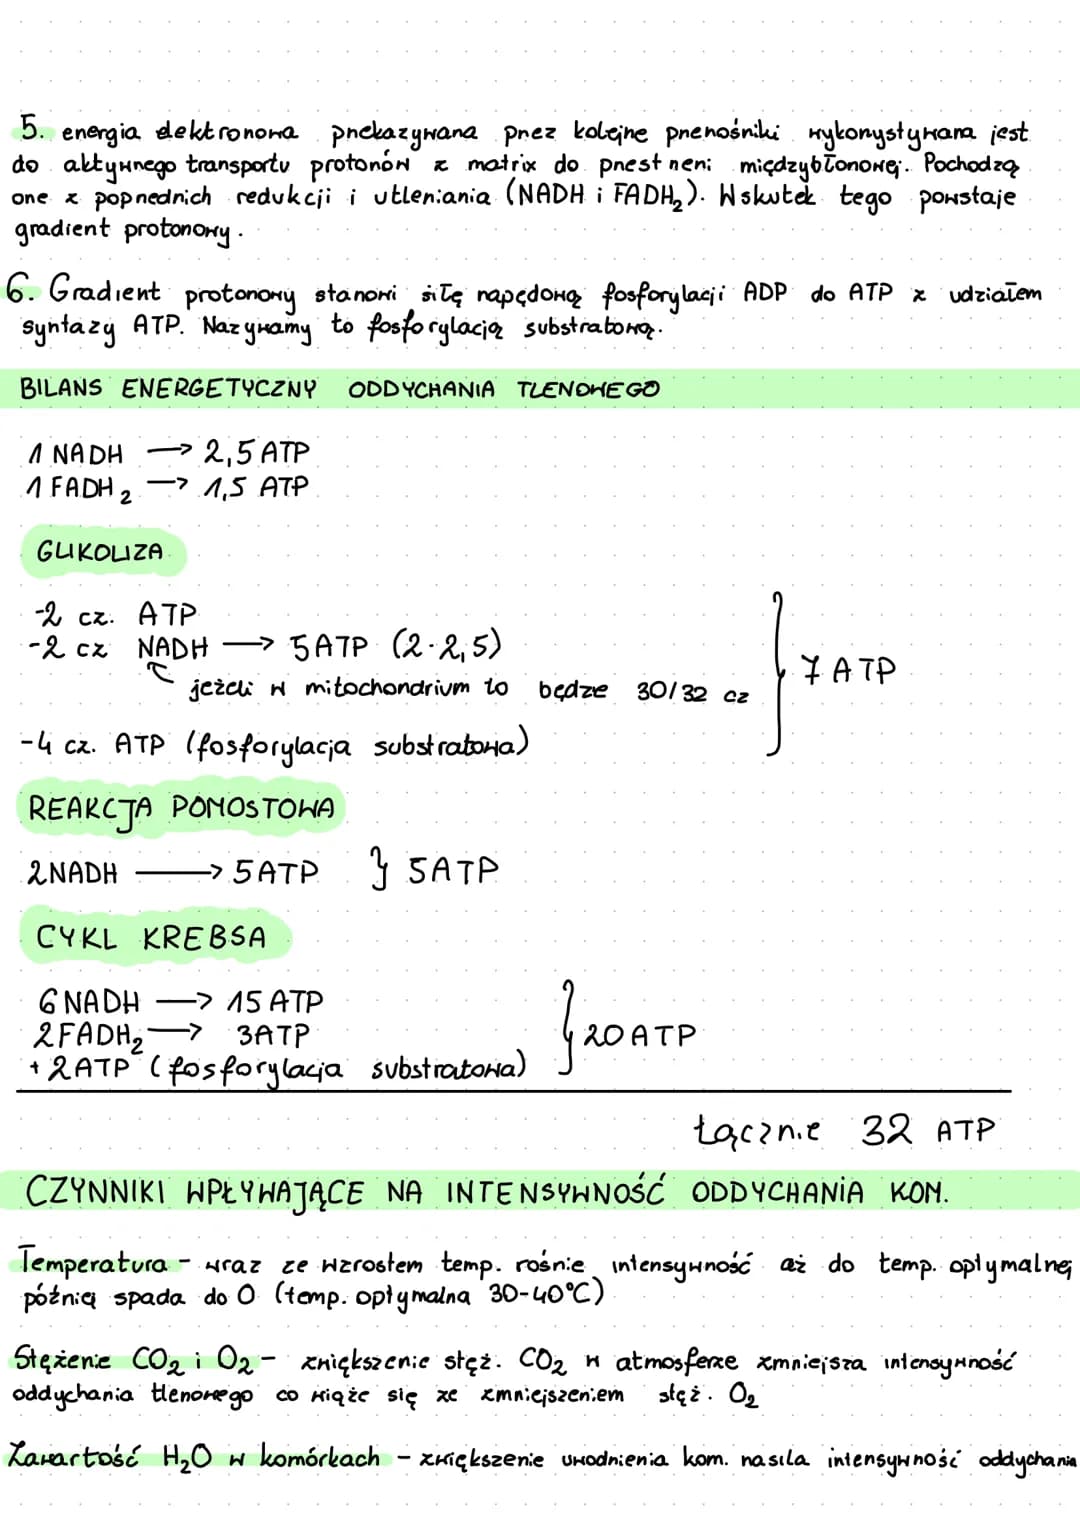 5. energia elektronowa przekazywana przez kolejne przenośniki wykorzystywana jest
do aktywnego transportu protonów z matrix do przestrzeni międzybłonowej. Pochodzą
one z poprzednich redukcji i utleniania (NADH i FADH₂). Wskutek tego powstaje
gradient protonowy.
6. Gradient protonowy stanowi siłę napędową fosforylacji ADP do ATP z udziałem
syntazy ATP. Nazywamy to fosforylacją substratową.
BILANS ENERGETYCZNY ODDYCHANIA TLENOWEGO
1 NADH → 2,5 ATP
1 FADH₂ → 1,5 ATP
GLIKOLIZA
-2 cz. ATP
-2 cz NADH → 5ATP (2·2,5)
jeżeli w mitochondrium to będze 30/32 cz
} 7 ATP
-4 cz. ATP (fosforylacja substratowa)
REAKCJA POMOSTOWA
2NADH → 5ATP } 5ATP
CYKL KREBSA
6NADH → 15 ATP
2FADH₂ → 3ATP } 20 ATP
+ 2ATP (fosforylacja substratowa)
łącznie 32 ATP
CZYNNIKI WPŁYWAJĄCE NA INTENSYWNOŚĆ ODDYCHANIA KOM.
Temperatura - wraz ze wzrostem temp. rośnie intensywność aż do temp. optymalnej
później spada do 0 (temp. optymalna 30-40°C)
Stężenie CO₂ i O₂ - zwiększenie stęż. CO₂ w atmosferze zmniejsza intensywność
oddychania tlenowego co wiąże się ze zmniejszeniem stęż. O₂
Zawartość H₂O w komórkach - zwiększenie uwodnienia kom. nasila intensywność oddychania